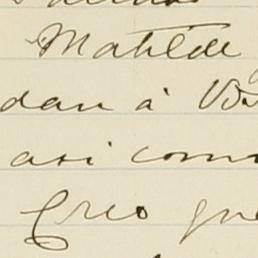 Matilde
dan á Vds
asi como
Creo que